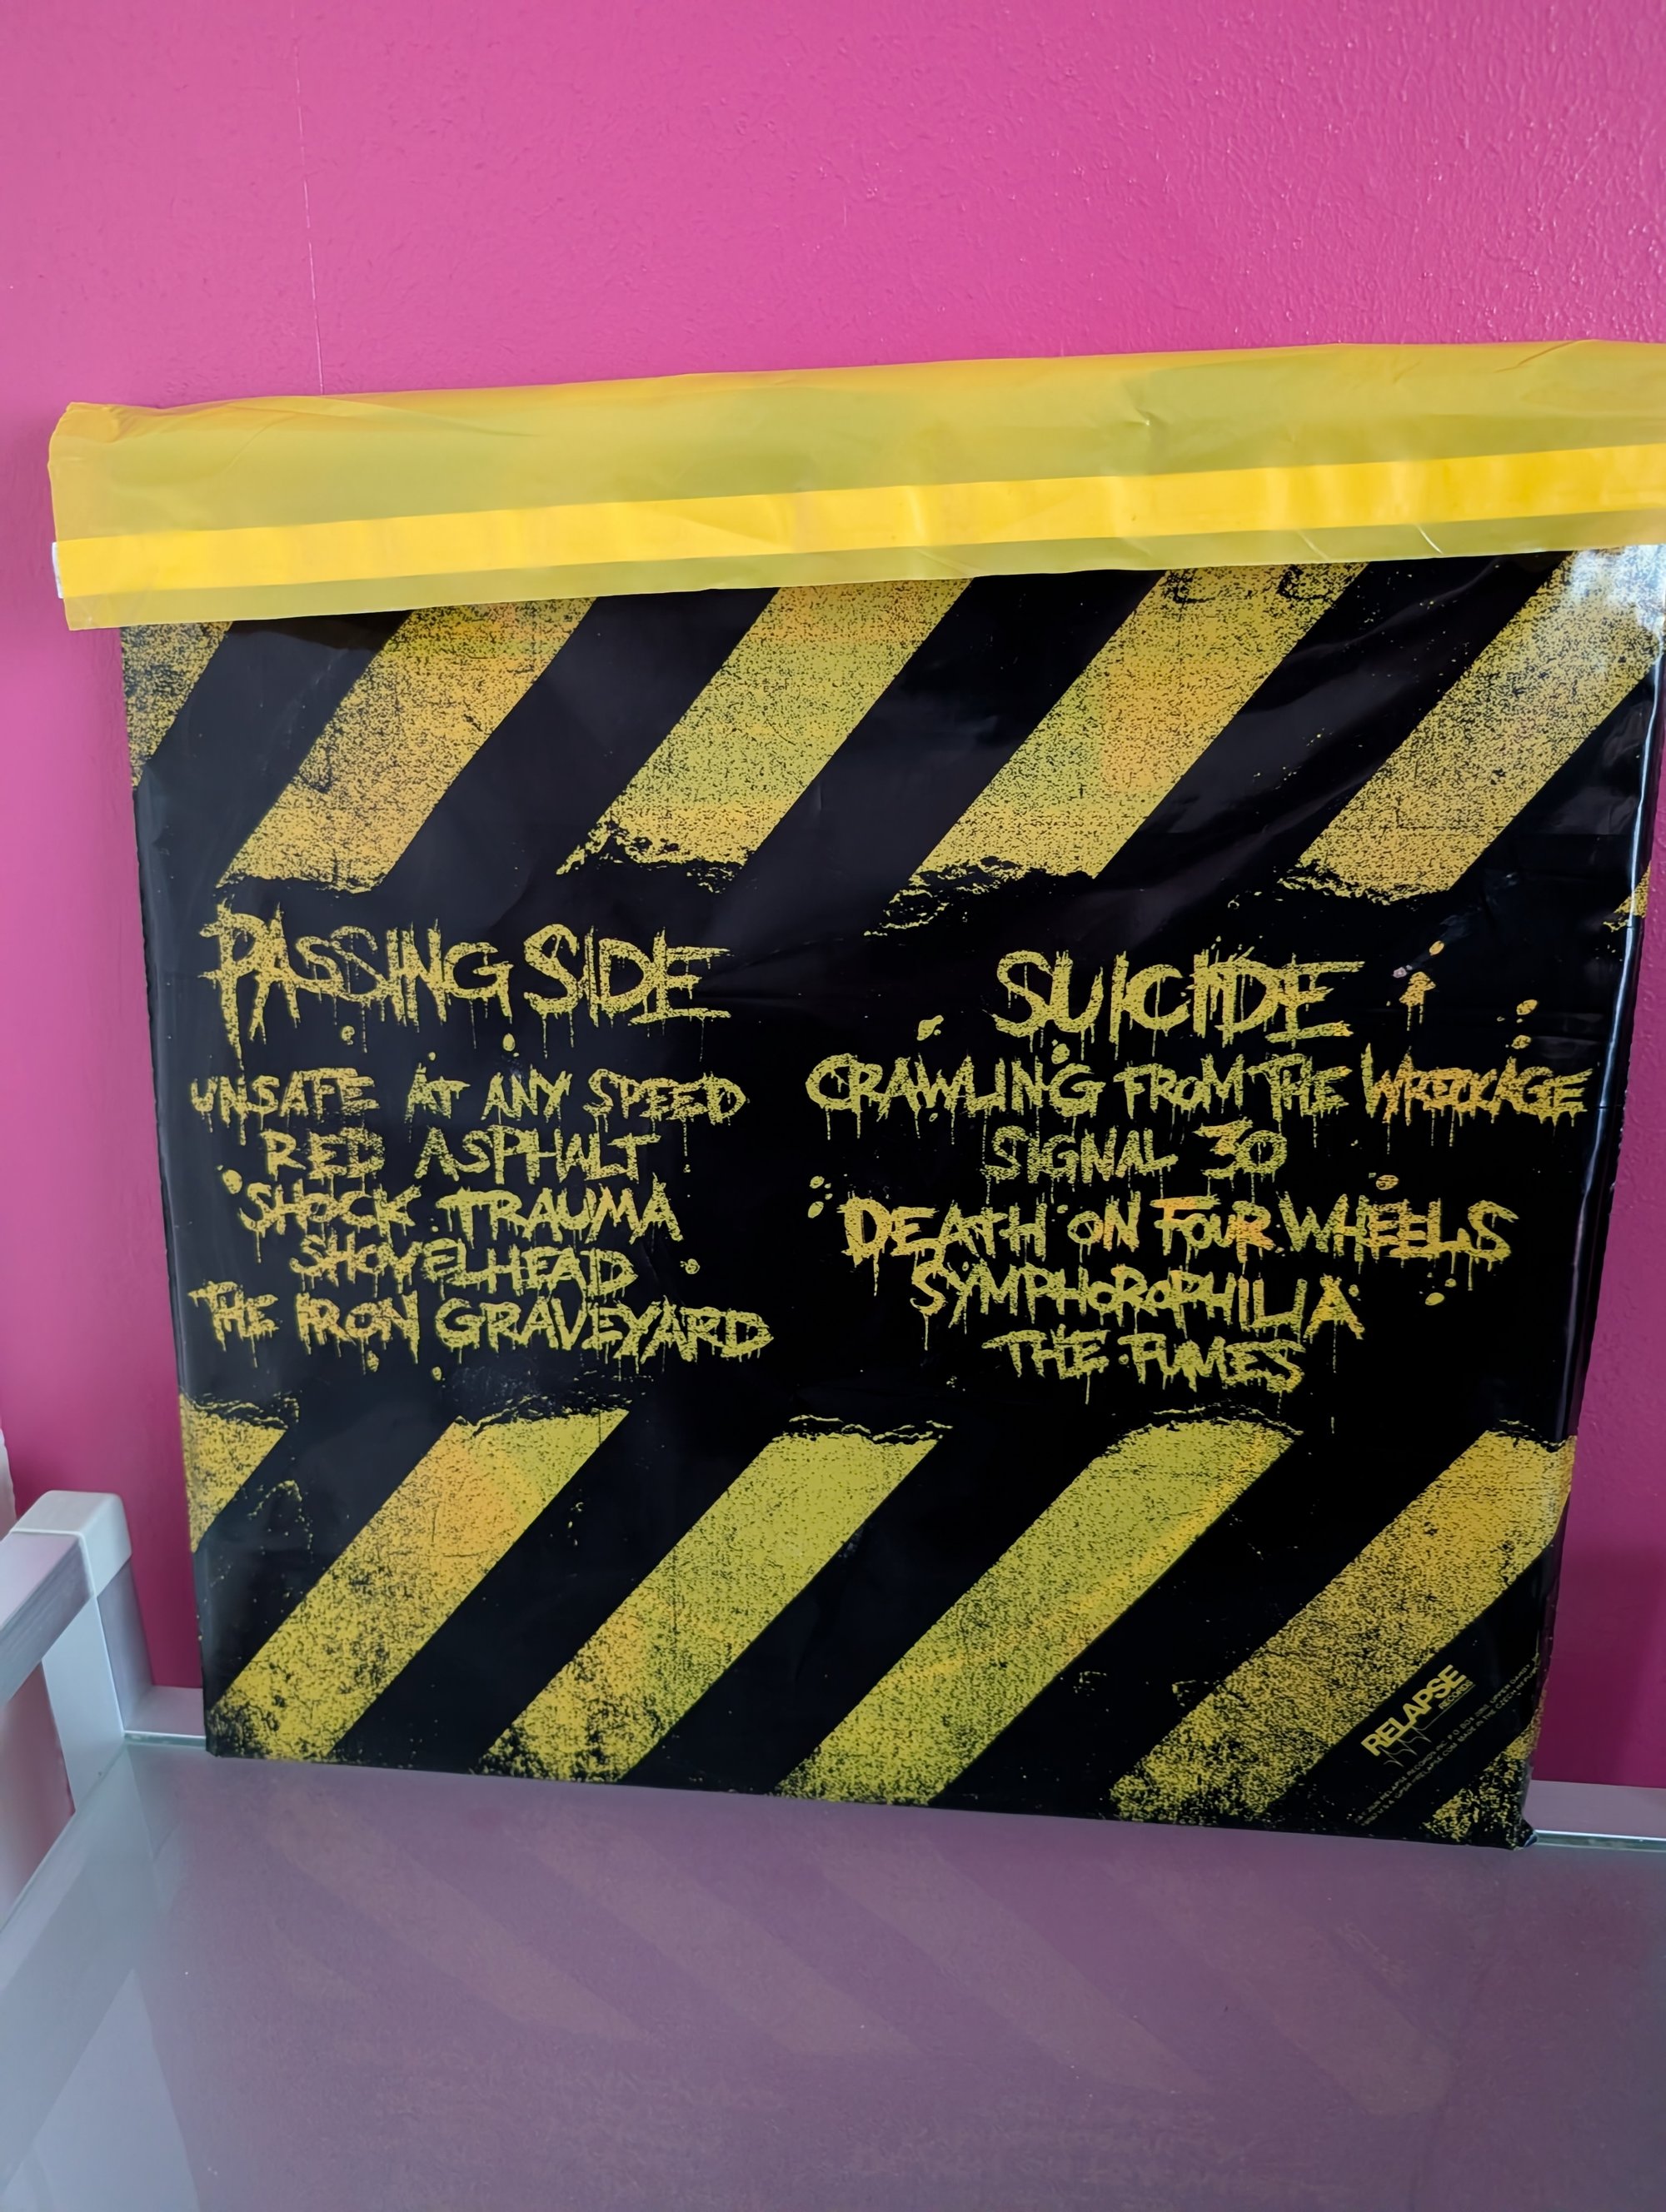 PASSING SIDE
UNSAFE AT ANY SPEED
RED ASPHALT
SHOCK TRAUMA
SHOVELHEAD
THE IRON GRAVEYARD
SUICIDE
CRAWLING FROM THE WRECKAGE
SIGNAL 30
DEATH ON FOUR WHEELS
SYMPHOROPHILIA
THE FUMES
RELAPSE
RECORDS